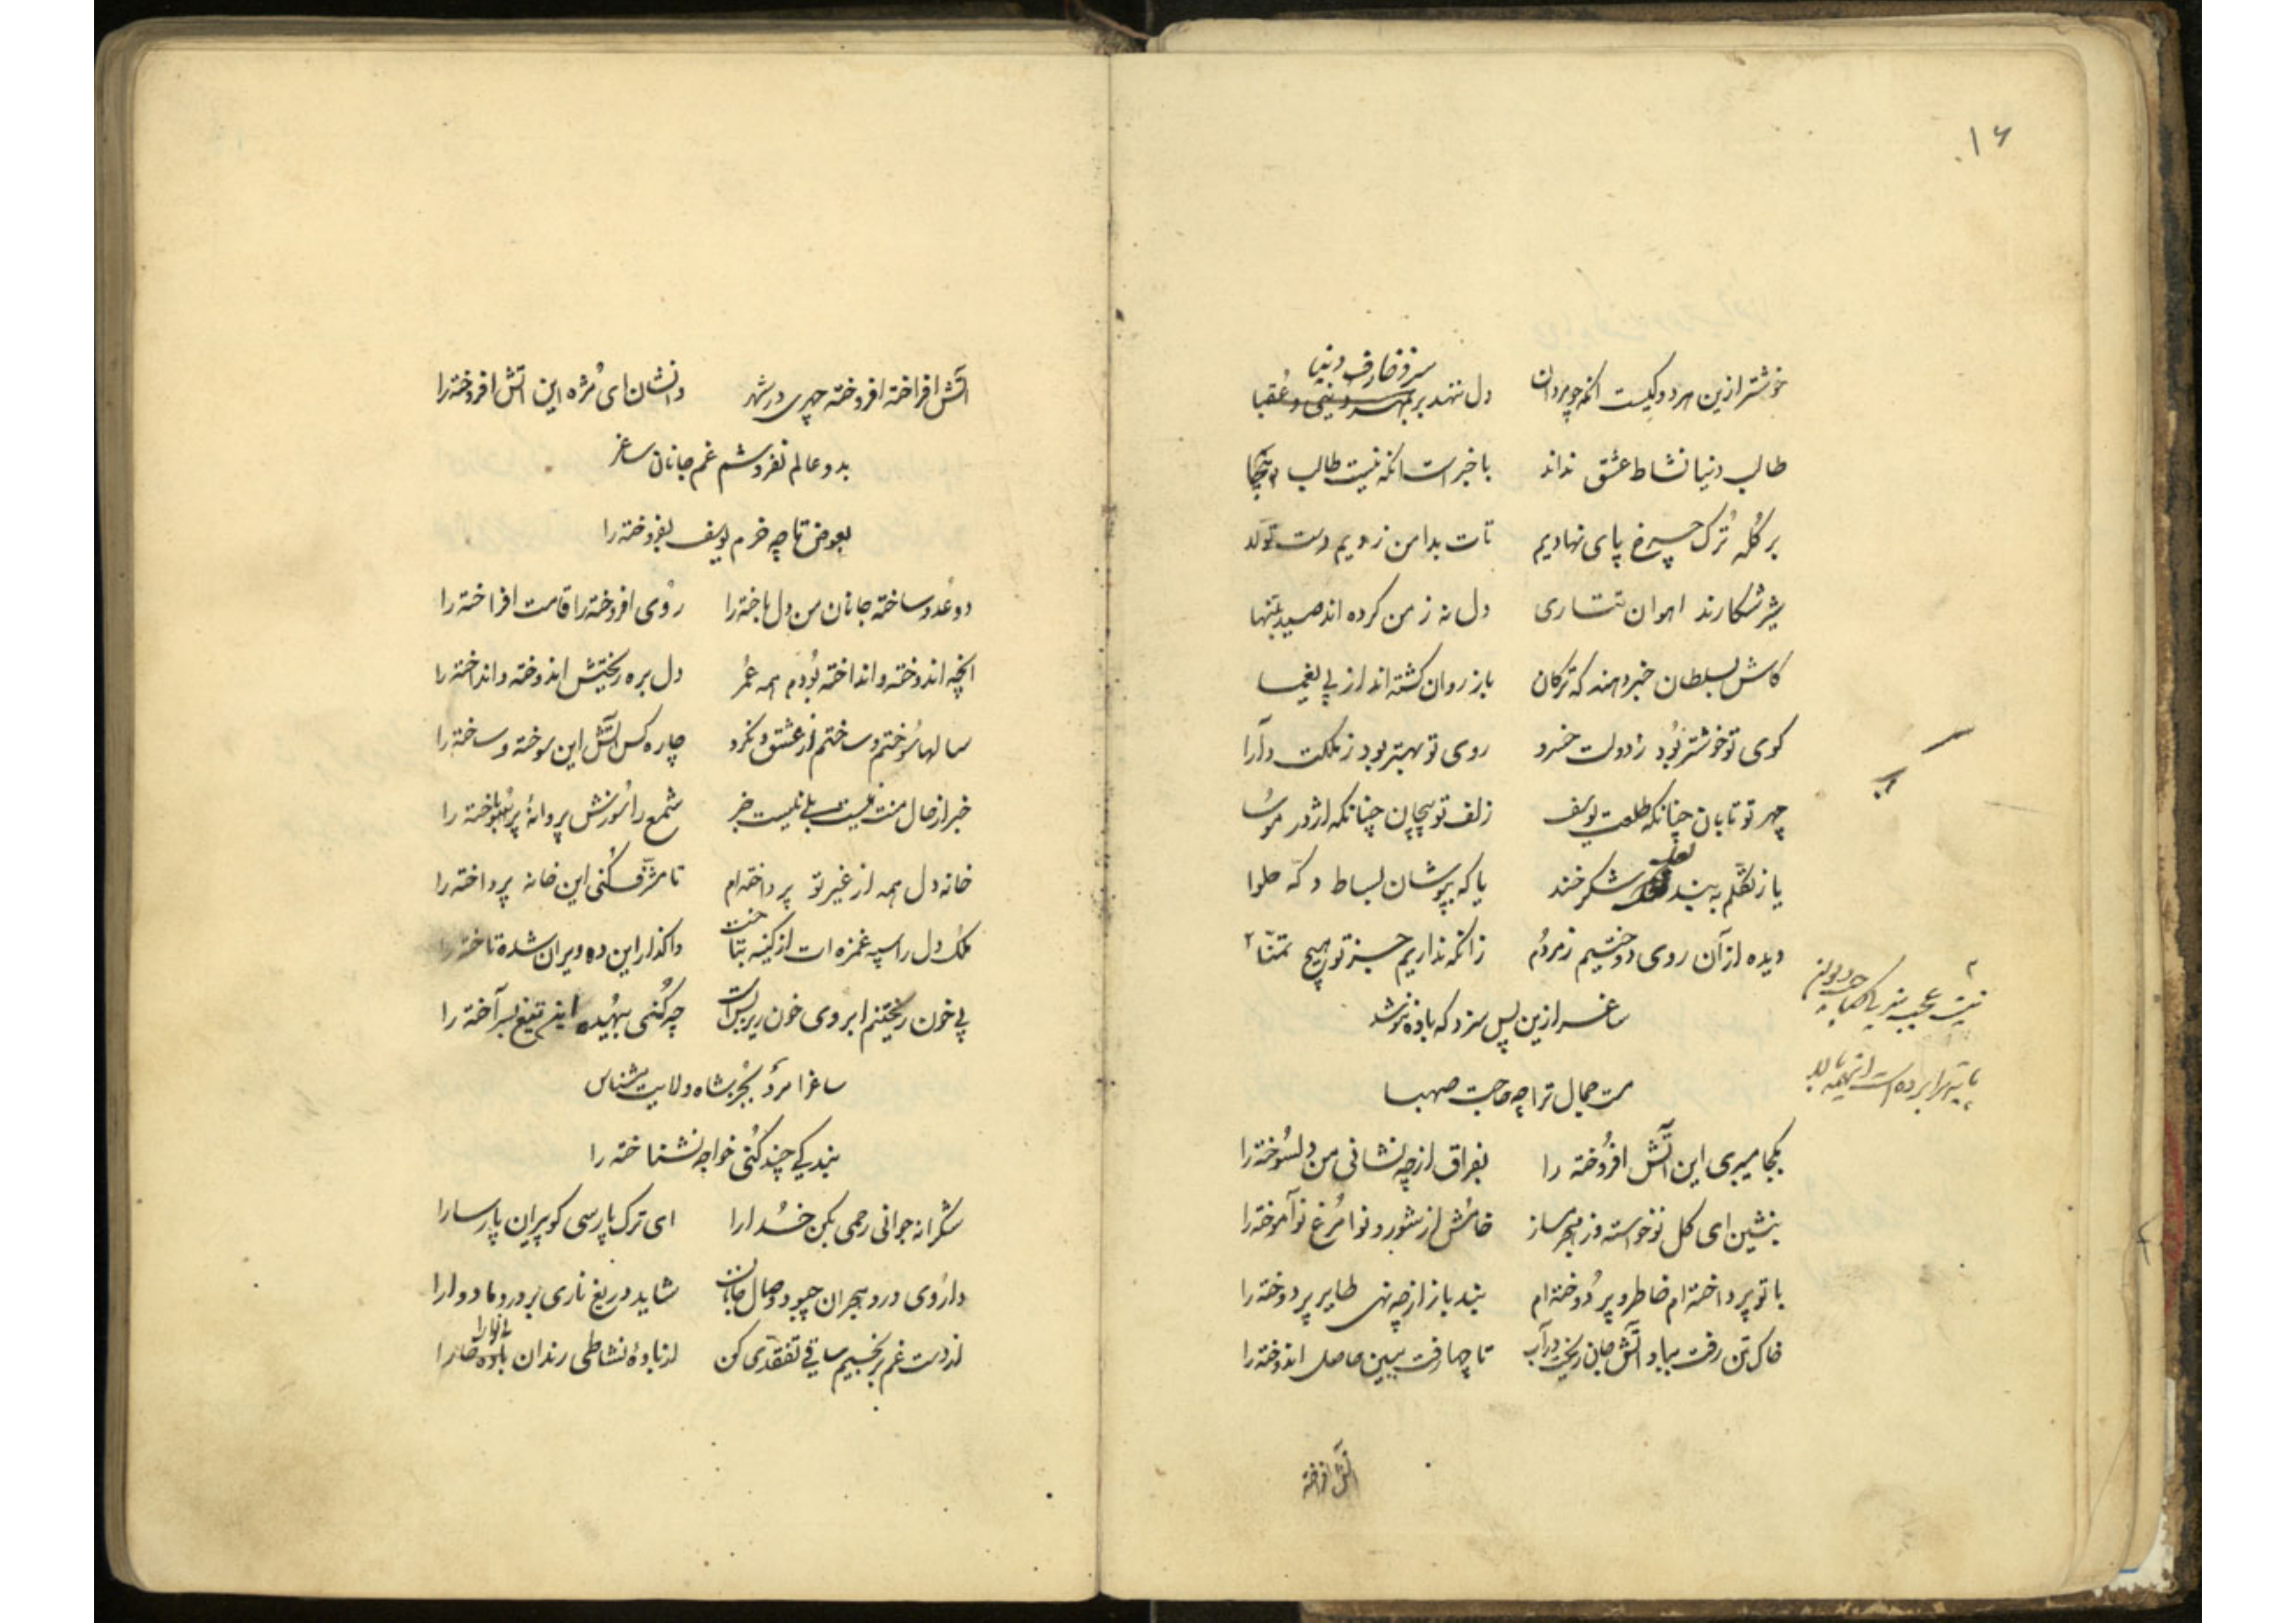 ۱۶
سر و زخارف دنیا
خوشتر ازین هر دو کیست انکه چو مردان دل ننهد بر بهر دنیی و عقبا
طالب دنیا نشاط عشق نداند با خبر است انکه نیست طالب
بر کله ترک چرخ پای نهادیم تات بدامن زدیم دست تولا
شیر شکارند اهوان تتاری دل نه ز من کرده اند صید بتنها
کاش بسلطان خبر دهند که ترکان باز روان گشته اند از پی یغما
کوی تو خوشتر بود ز دولت خسرو روی تو بهتر بود ز ملکت دارا
چهر تو تابان چنانکه طلعت یوسف زلف تو پیچان چنانکه اژدر موسا
یا ز تکلم به بند لعل شکر خند یا که بپوشان بساط دکه حلوا
دیده از آن روی دوختیم ز مردم زانکه نداریم جز تو هیچ تمنا ۲
ساغر ازین پس سزد که باده ننوشد
مست جمال ترا چه حاجت صهبا
۲
نیست عجب
پایه ترا برده است
بکجا میبری این آتش افروخته را بفراق از چه نشانی من دلسوخته را
بنشین ای گل نوخواسته وز هجر مساز خامش از شور و نوا مرغ نوآموخته را
با تو پرداخته ام خاطر و پر دوخته ام بند باز از چه نهی طایر پر دوخته را
خاک تن رفت بباد آتش جان ریخت در آب تا چها رفت ببین حاصل اندوخته را
آتش افراخته
آتش افراخته افروخته چهری در شهر دانشان ای مژه این اتش افروخته را
بدو عالم نفروشم غم جانان ساغر
بعوض تا چه خرم یوسف بفروخته را
دو عدو ساخته جانان من دل باخته را روی افروخته را قامت افراخته را
انچه اندوخته و انداخته بودم همه عمر دل بره ریختیش اندوخته و انداخته را
سالها سوختم و ساختم از عشق و نکرد چاره کس آتش این سوخته و ساخته را
خبر از حال منت نیست بلی نیست خبر شمع را سوزش پروانه پر باخته را
خانه دل همه از غیر تو پرداخته ام تا مشرف کنی این خانه پرداخته را
ملک دل را سپه غمزه ات از کینه بتاخت واگذار این ده ویران شده تاخته را
پی خون ریختنم ابروی خون ریز بس است چه کنی بیهده این تیغ بسر آخته را
ساغرا مرد بجز شاه ولایت مشناس
بندگی چند کنی خواجه نشناخته را
شکرانه جوانی رحمی بکن خدا را ای ترک پارسی گو پیران پارسا را
داروی درد هجران چبود وصال جانان شاید دریغ ناری بر دردما دوا را
از دست غم برنجیم ساقی تفقدی کن از باده نشاطی رندان باده خوار را
بی نوا را